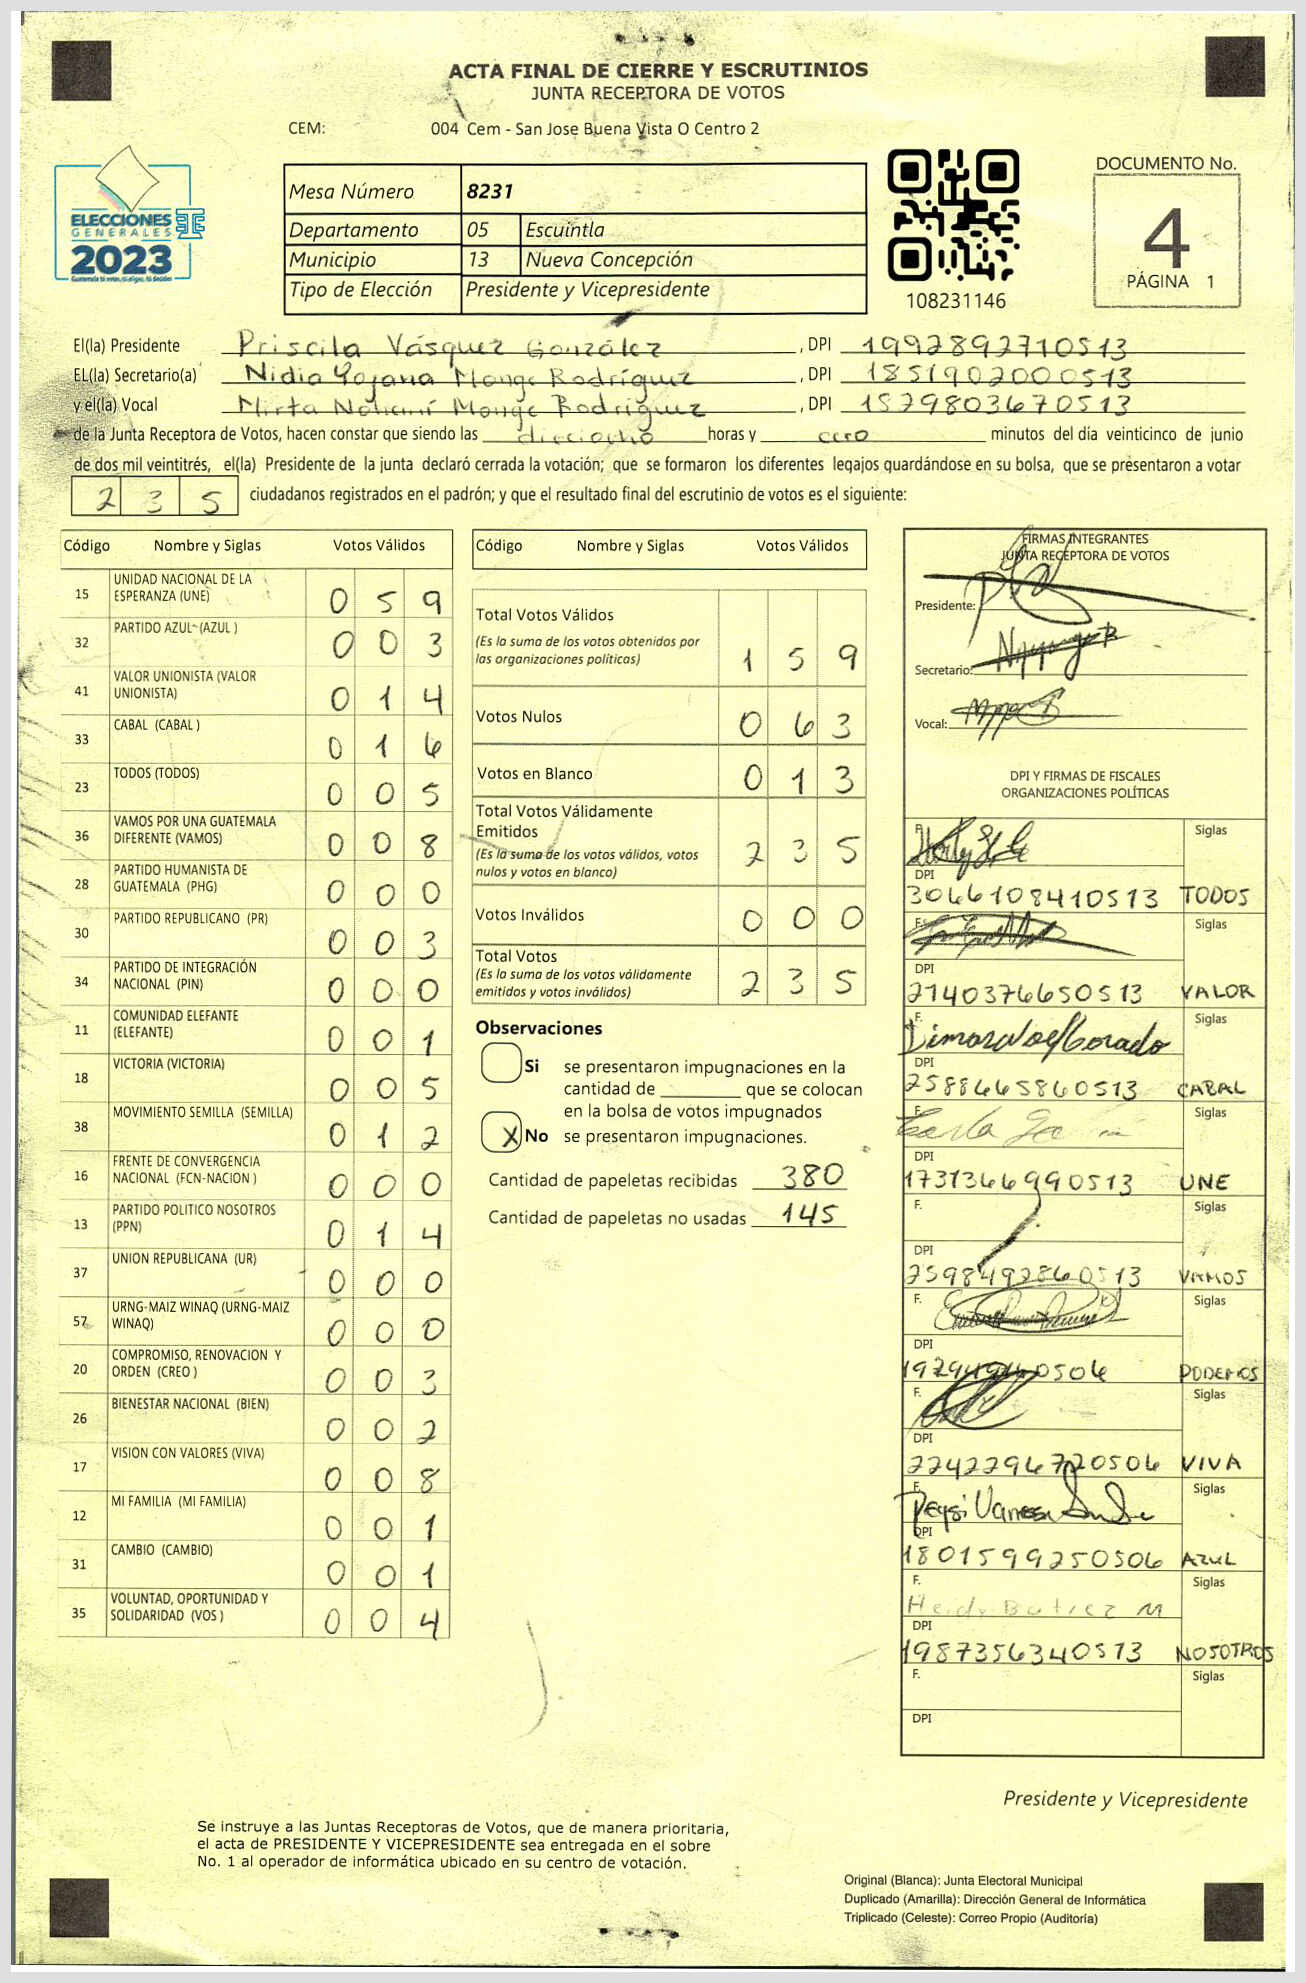 ACTA FINAL DE CIERRE Y ESCRUTINIOS
JUNTA RECEPTORA DE VOTOS
CEM: 004 Cem - San Jose Buena Vista O Centro 2
ELECCIONES
GENERALES
2023
Mesa Número 8231
Departamento 05 Escuintla
Municipio 13 Nueva Concepción
Tipo de Elección Presidente y Vicepresidente
108231146
DOCUMENTO No.
4
PÁGINA 1
El(la) Presidente Priscila Vásquez González , DPI 1992892710513
EL(la) Secretario(a) Nidia Yojana Monge Rodríguez , DPI 1851902000513
y el(la) Vocal Mirta Nohemí Monge Rodríguez , DPI 1579803670513
de la Junta Receptora de Votos, hacen constar que siendo las dieciocho horas y cero minutos del día veinticinco de junio
de dos mil veintitrés, el(la) Presidente de la junta declaró cerrada la votación; que se formaron los diferentes legajos guardándose en su bolsa, que se presentaron a votar
235 ciudadanos registrados en el padrón; y que el resultado final del escrutinio de votos es el siguiente:
Código Nombre y Siglas Votos Válidos
15 UNIDAD NACIONAL DE LA ESPERANZA (UNE) 0 5 9
32 PARTIDO AZUL (AZUL ) 0 0 3
41 VALOR UNIONISTA (VALOR UNIONISTA) 0 1 4
33 CABAL (CABAL ) 0 1 6
23 TODOS (TODOS) 0 0 5
36 VAMOS POR UNA GUATEMALA DIFERENTE (VAMOS) 0 0 8
28 PARTIDO HUMANISTA DE GUATEMALA (PHG) 0 0 0
30 PARTIDO REPUBLICANO (PR) 0 0 3
34 PARTIDO DE INTEGRACIÓN NACIONAL (PIN) 0 0 0
11 COMUNIDAD ELEFANTE (ELEFANTE) 0 0 1
18 VICTORIA (VICTORIA) 0 0 5
38 MOVIMIENTO SEMILLA (SEMILLA) 0 1 2
16 FRENTE DE CONVERGENCIA NACIONAL (FCN-NACION ) 0 0 0
13 PARTIDO POLITICO NOSOTROS (PPN) 0 1 4
37 UNION REPUBLICANA (UR) 0 0 0
57 URNG-MAIZ WINAQ (URNG-MAIZ WINAQ) 0 0 0
20 COMPROMISO, RENOVACION Y ORDEN (CREO ) 0 0 3
26 BIENESTAR NACIONAL (BIEN) 0 0 2
17 VISION CON VALORES (VIVA) 0 0 8
12 MI FAMILIA (MI FAMILIA) 0 0 1
31 CAMBIO (CAMBIO) 0 0 1
35 VOLUNTAD, OPORTUNIDAD Y SOLIDARIDAD (VOS ) 0 0 4
Código Nombre y Siglas Votos Válidos
Total Votos Válidos
(Es la suma de los votos obtenidos por
las organizaciones políticas) 1 5 9
Votos Nulos 0 6 3
Votos en Blanco 0 1 3
Total Votos Válidamente
Emitidos
(Es la suma de los votos válidos, votos
nulos y votos en blanco) 2 3 5
Votos Inválidos 0 0 0
Total Votos
(Es la suma de los votos válidamente
emitidos y votos inválidos) 2 3 5
Observaciones
Si se presentaron impugnaciones en la
cantidad de ________ que se colocan
en la bolsa de votos impugnados
X No se presentaron impugnaciones.
Cantidad de papeletas recibidas 380
Cantidad de papeletas no usadas 145
FIRMAS INTEGRANTES
JUNTA RECEPTORA DE VOTOS
Presidente:
Secretario:
Vocal:
DPI Y FIRMAS DE FISCALES
ORGANIZACIONES POLÍTICAS
F. Siglas
DPI
3066108410513 TODOS
F. Siglas
DPI
2140376650513 VALOR
F. Siglas
DPI
2588665860513 CABAL
F. Karla Siglas
DPI
1731366990513 UNE
F. Siglas
DPI
2598492860513 VAMOS
F. Siglas
DPI
PODEMOS
F. Siglas
DPI
2242296720506 VIVA
F. Deysi Vanessa Siglas
DPI
1801599250506 AZUL
F. Heidy Batrez M Siglas
DPI
1987356340513 NOSOTROS
F. Siglas
DPI
Presidente y Vicepresidente
Se instruye a las Juntas Receptoras de Votos, que de manera prioritaria,
el acta de PRESIDENTE Y VICEPRESIDENTE sea entregada en el sobre
No. 1 al operador de informática ubicado en su centro de votación.
Original (Blanca): Junta Electoral Municipal
Duplicado (Amarilla): Dirección General de Informática
Triplicado (Celeste): Correo Propio (Auditoría)